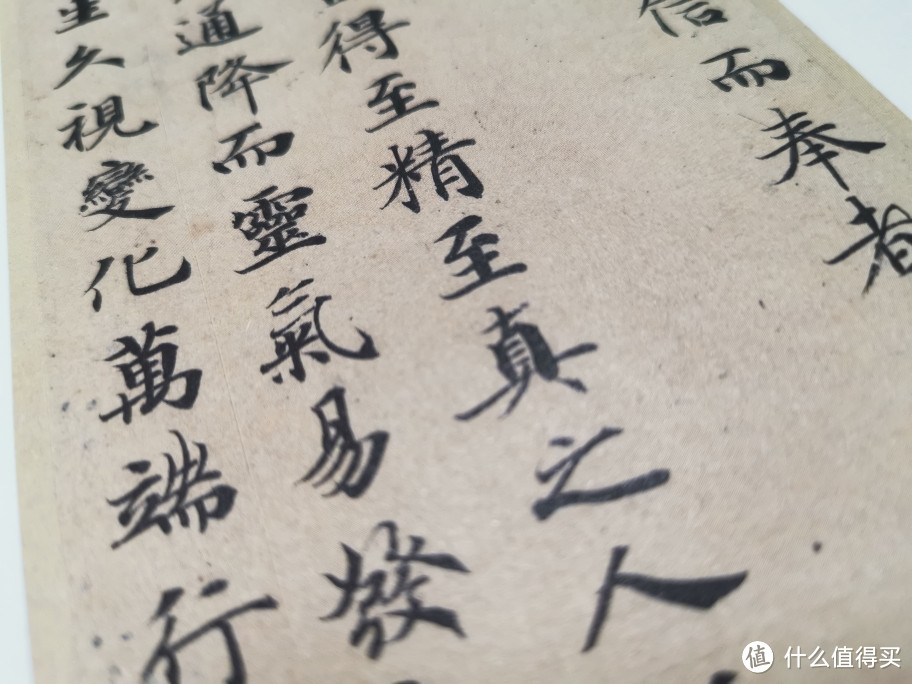 信而奉者
得至精至真之人
通降而靈氣易發
久視變化萬端行
值 什么值得买